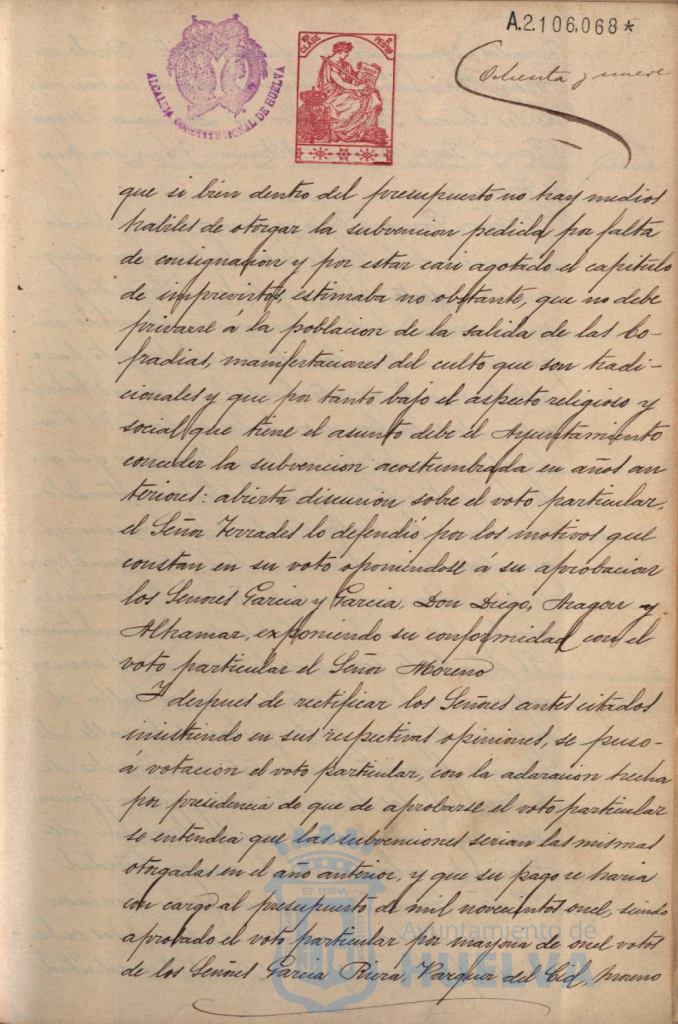 A.2.106,068*
Ochenta y nueve
ALCALDIA CONSTITUCIONAL DE HUELVA
CLASE
PESETAS
que si bien dentro del presupuesto no hay medios
habiles de otorgar la subvencion pedida por falta
de consignacion y por estar casi agotado el capitulo
de imprevistos, estimaba no obstante, que no debe
privarse á la poblacion de la salida de las Co-
fradias, manifestaciones del culto que son tradi-
cionales y que por tanto bajo el aspecto religioso y
social que tiene el asunto debe el Ayuntamiento
conceder la subvencion acostumbrada en años an
teriores: abierta discusion sobre el voto particular,
el Señor Terrades lo defendió por los motivos que
constan en su voto oponiendose á su aprobacion
los Señores Garcia y Garcia, Don Diego, Aragon y
Alhamar, exponiendo su conformidad con el
voto particular el Señor Moreno
Y despues de rectificar los Señores antes citados
insistiendo en sus respectivas opiniones, se puso
á votacion el voto particular, con la aclaracion hecha
por presidencia de que de aprobarse el voto particular
se entendia que las subvenciones serian las mismas
otorgadas en el año anterior, y que su pago se haria
con cargo al presupuesto de mil novecientos once, siendo
aprobado el voto particular por mayoria de once votos
de los Señores Garcia Riera, Vazquez del Cid, Moreno
Ayuntamiento de
HUELVA